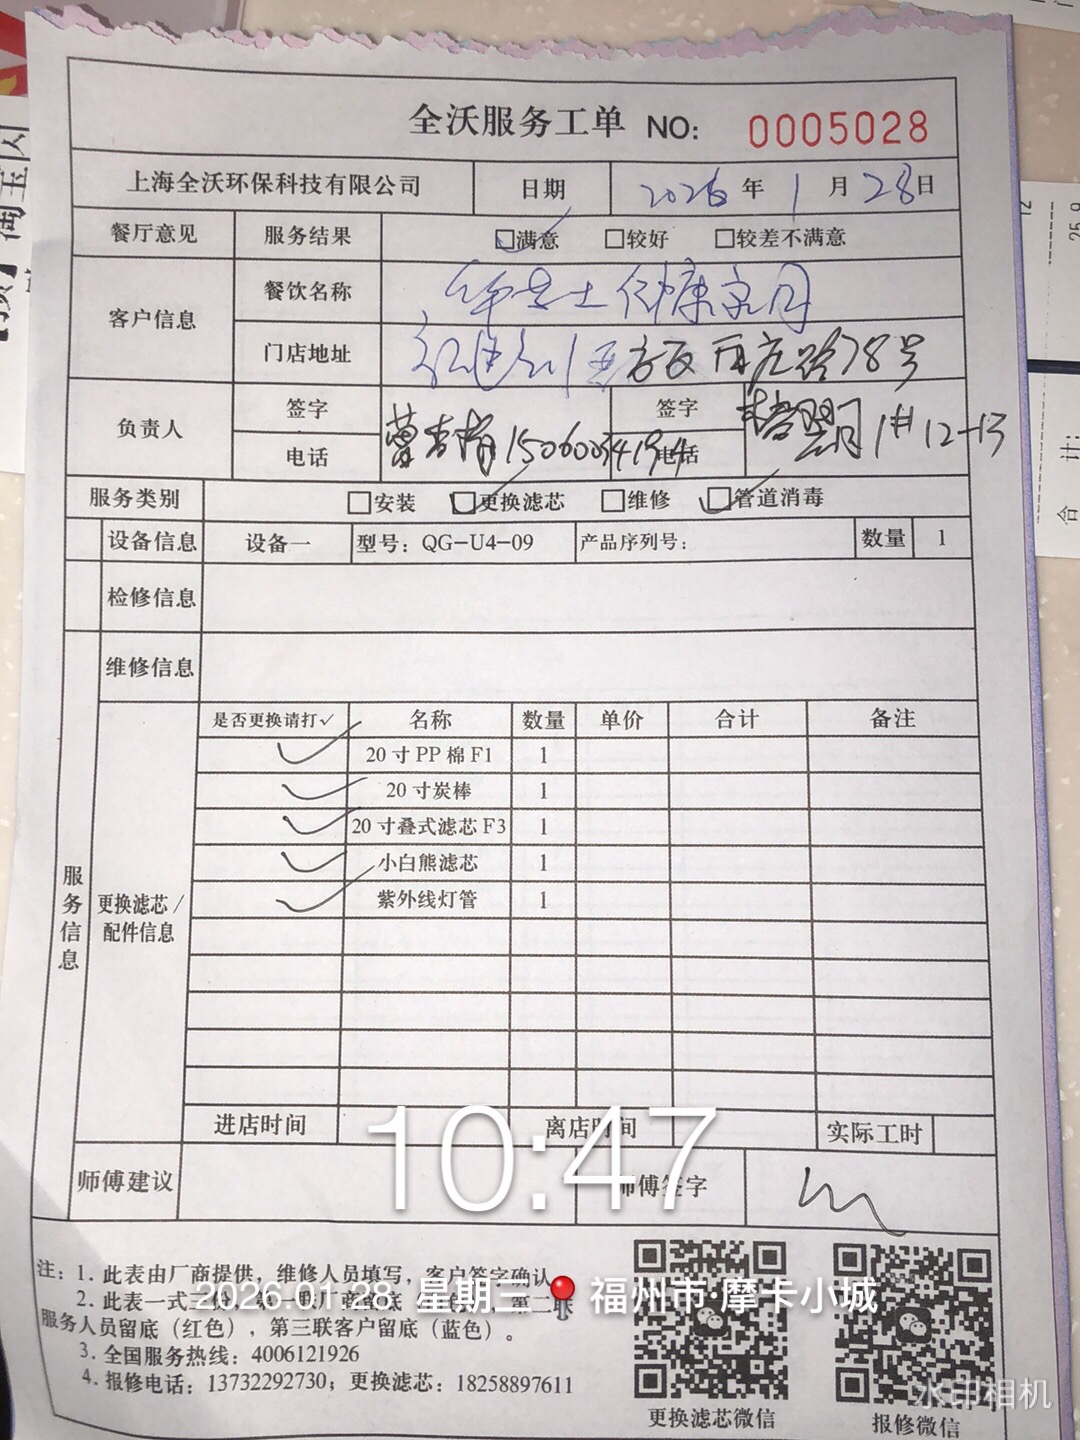 全沃服务工单 NO: 0005028
上海全沃环保科技有限公司 日期 2026年1月28日
餐厅意见 服务结果 □满意 □较好 □较差不满意
客户信息 餐饮名称
门店地址 路78号
负责人 签字 签字
电话 电话 1# 12-13
服务类别 □安装 □更换滤芯 □维修 □管道消毒
设备信息 设备一 型号：QG-U4-09 产品序列号： 数量 1
检修信息
维修信息
服务信息
更换滤芯/配件信息
是否更换请打✓ 名称 数量 单价 合计 备注
✓ 20寸PP棉F1 1
✓ 20寸炭棒 1
✓ 20寸叠式滤芯F3 1
✓ 小白熊滤芯 1
✓ 紫外线灯管 1
进店时间 离店时间 实际工时
10:47
师傅建议 师傅签字
注：1. 此表由厂商提供，维修人员填写，客户签字确认
2. 此表一式三
服务人员留底（红色），第三联客户留底（蓝色）。
3. 全国服务热线：4006121926
4. 报修电话：13732292730；更换滤芯：18258897611
2026.01.28 星期三 福州市·摩卡小城
更换滤芯微信 报修微信
水印相机
合 计：